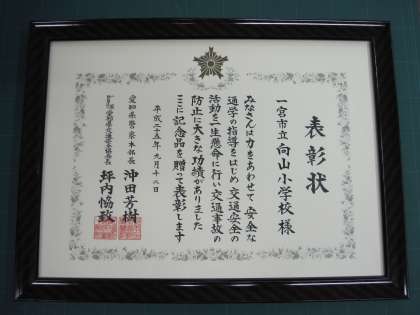 表彰状
一宮市立向山小学校様
みなさんは力をあわせて安全な
通学の指導をはじめ交通安全の
活動を一生懸命に行い交通事故の
防止に大きな功績がありました
ここに記念品を贈って表彰します
平成二十五年九月十八日
愛知県警察本部長 沖田芳樹
愛知県交通安全協会長 坪内恊致